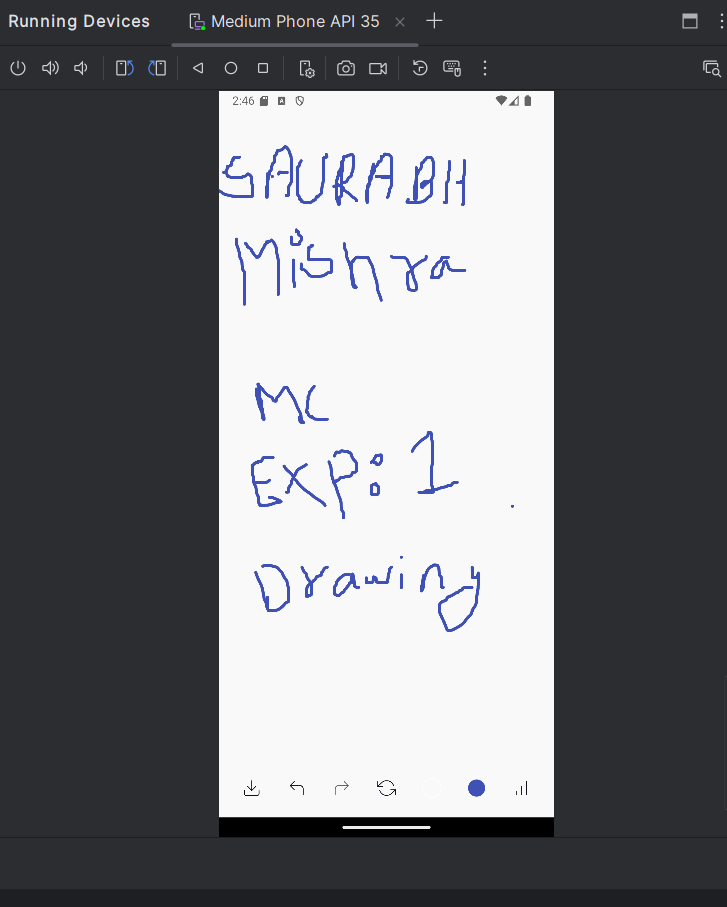 Running Devices Medium Phone API 35
2:46
SAURABH
Mishra
MC
EXP: 1
Drawing